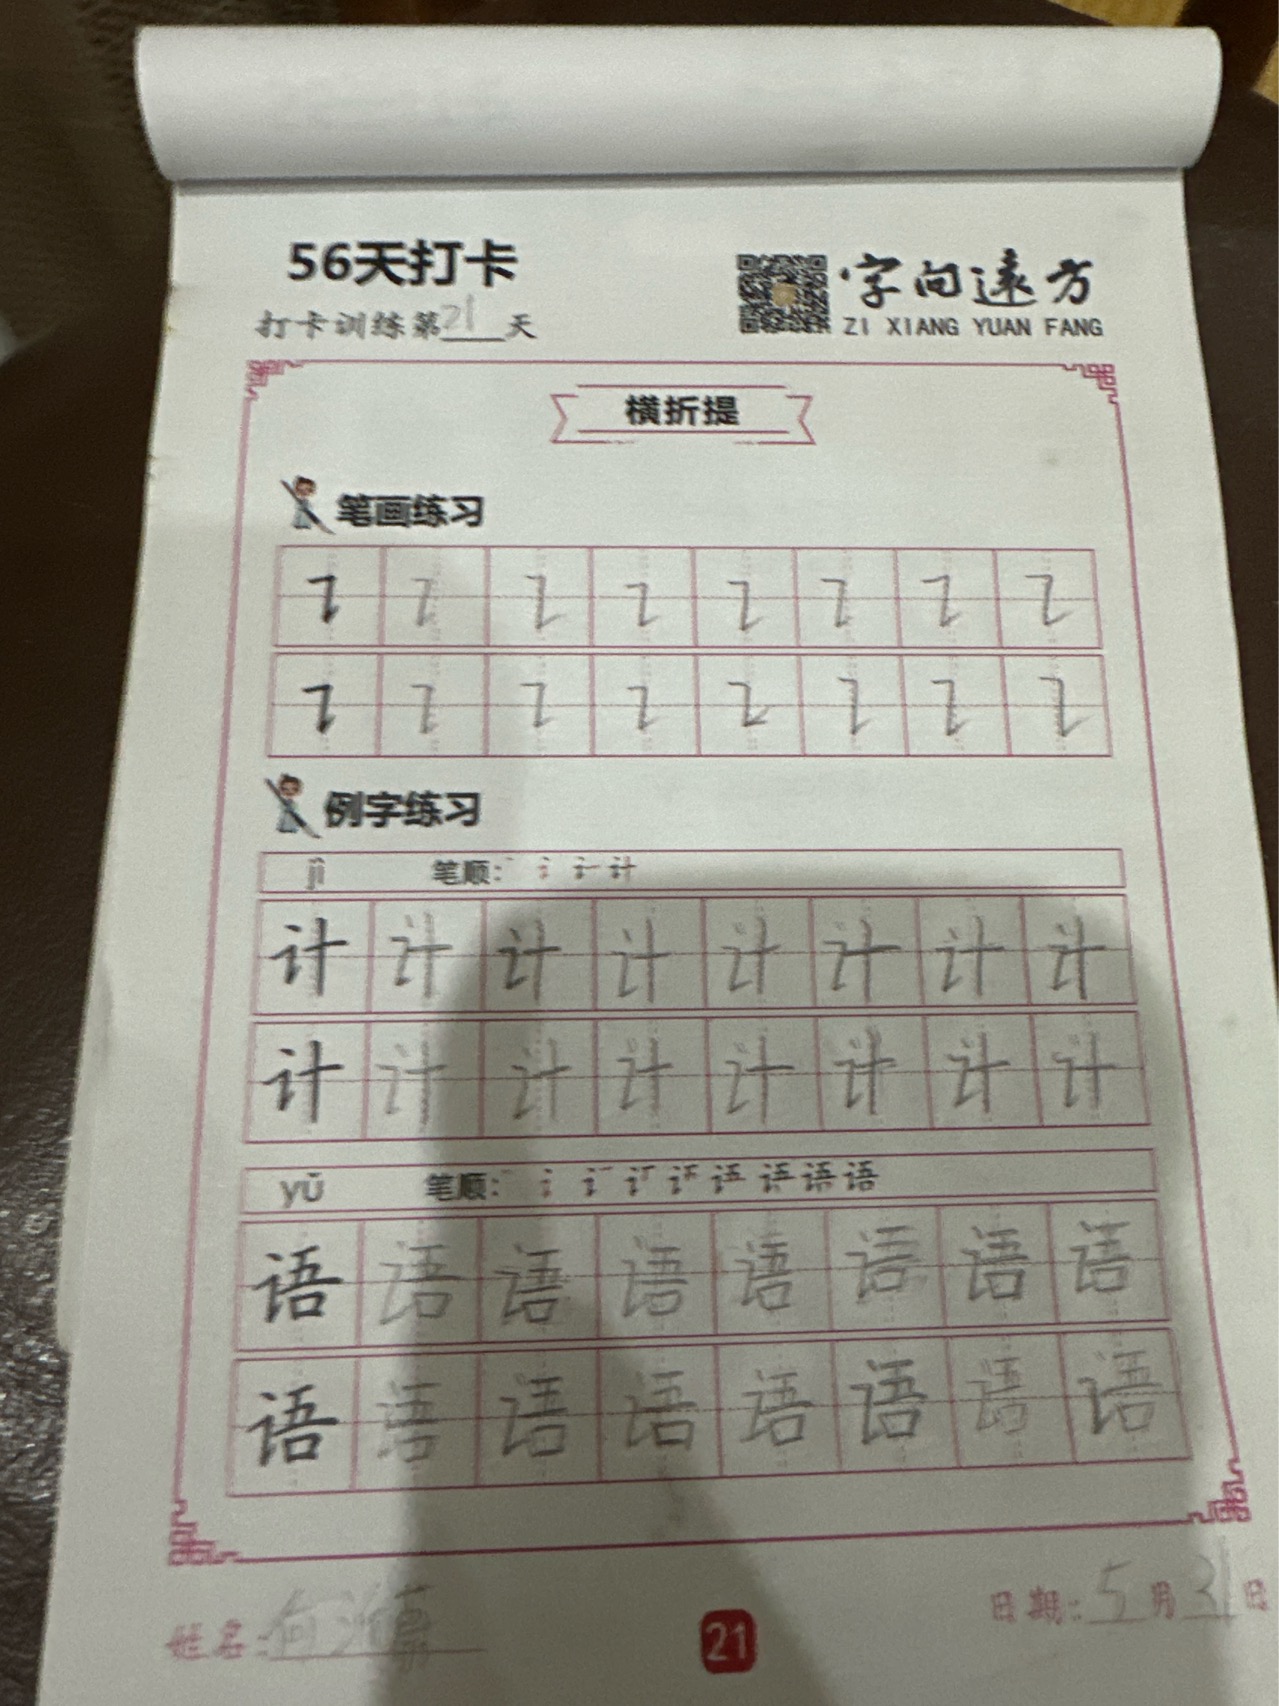 56天打卡
字向遠方
打卡训练第21天
ZI XIANG YUAN FANG
横折提
笔画练习
㇊ ㇊ ㇊ ㇊ ㇊ ㇊ ㇊ ㇊
㇊ ㇊ ㇊ ㇊ ㇊ ㇊ ㇊ ㇊
例字练习
jì 笔顺：
计 计 计 计 计 计 计 计
计 计 计 计 计 计 计 计
yǔ 笔顺：
语 语 语 语 语 语 语 语
语 语 语 语 语 语 语 语
日期：5月31日
姓名：何
21